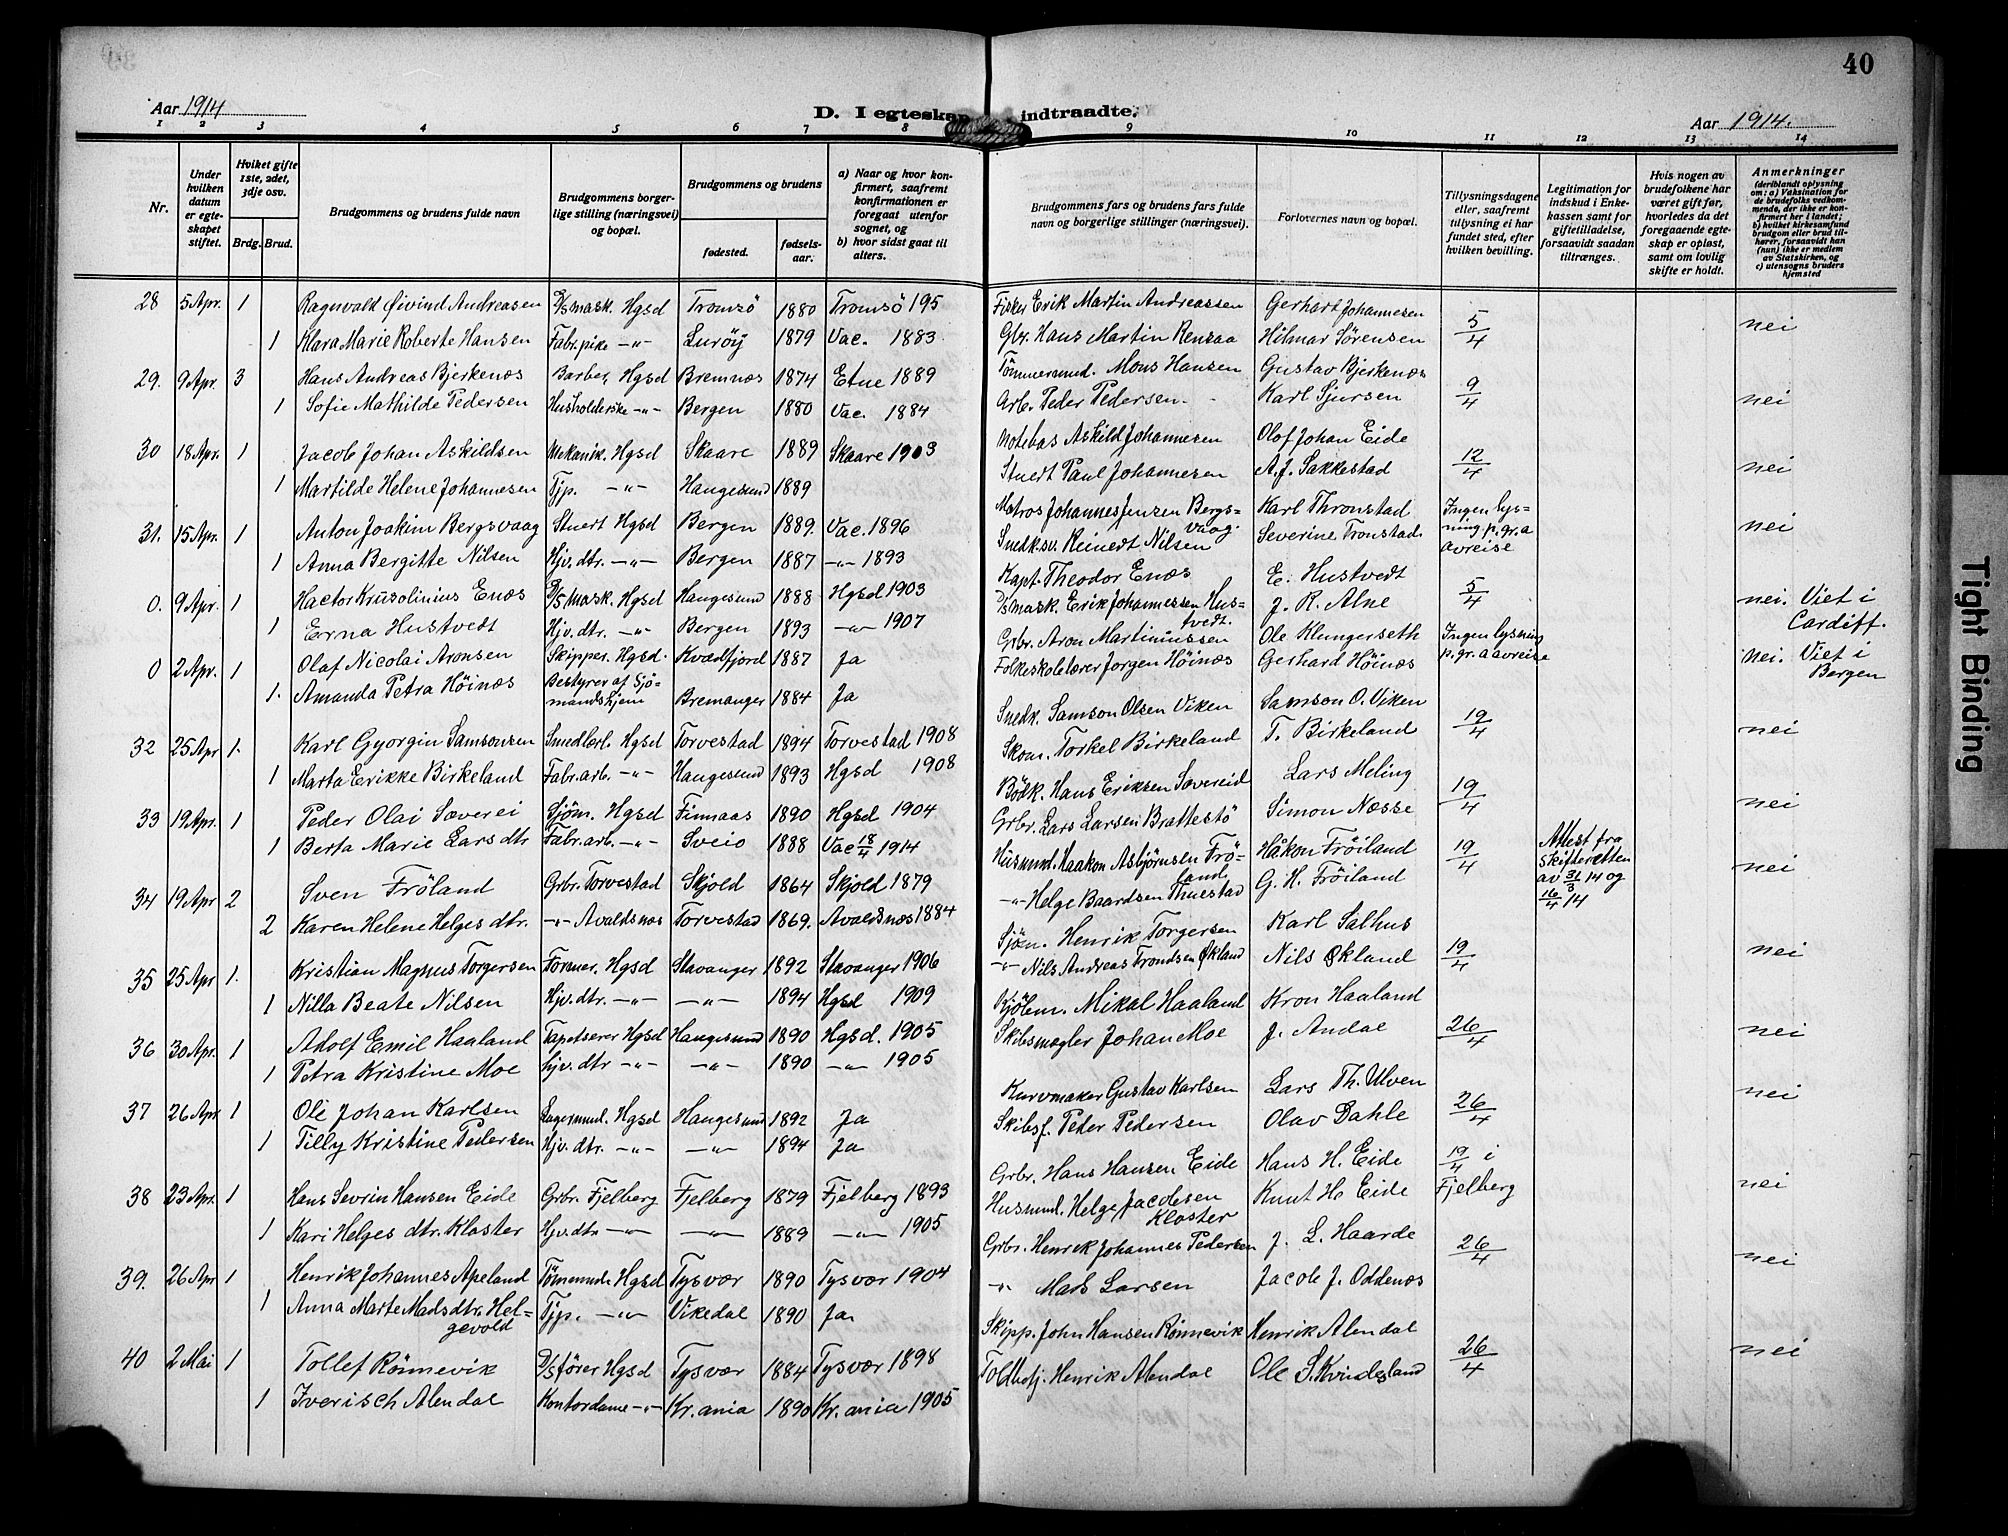 40
Aar 1914
D. I egteskap indtraadte.
Aar 1914.
1 2 3 4 5 6 7 8 9 10 11 12 13 14
Nr.
Under hvilken datum er egteskapet stiftet.
Hviket gifte 1ste, 2det, 3dje osv.
Brdg. Brud.
Brudgommens og brudens fulde navn
Brudgommens borgerlige stilling (næringsvei) og bopæl.
Brudgommens og brudens
fødested.
fødselsaar.
a) Naar og hvor konfirmert, saafremt konfirmationen er foregaat utenfor sognet, og
b) hvor sidst gaat til alters.
Brudgommens fars og brudens fars fulde navn og borgerlige stillinger (næringsvei).
Forlovernes navn og bopæl.
Tillysningsdagene eller, saafremt tillysning ei har fundet sted, efter hvilken bevilling.
Legitimation for indskud i Enkekassen samt for giftetilladelse, forsaavidt saadan tiltrænges.
Hvis nogen av brudefolkene har været gift før, hvorledes da det foregaaende egteskap er opløst, samt om lovlig skifte er holdt.
Anmerkninger (deriblandt oplysning om: a) Vaksination for de brudefolks vedkommende, der ikke er konfirmert her i landet; b) hvilket kirkesamfund brudgom eller brud tilhører, forsaavidt han (hun) ikke er medlem av Statskirken, og c) utensogns bruders hjemsted
28 5 Apr. 1 Ragnvald Øivind Andreasen D/S mask. Hgsd Tromsö 1880 Tromsö 195 Fisker Erik Martin Andreassen Gerhart Johannesen 5/4 nei
1 Klara Marie Roberte Hansen Fabr.pike -"- Luröy 1879 Vac. 1883 Gbr. Hans Martin Renzaa Hilmar Sörensen
29. 9 Apr. 3 Hans Andreas Bjerkenæs Barber, Hgsd Bremnæs 1874 Etne 1889 Tömmermd. Mons Hansen Gustav Bjerkenæs 9/4 nei
1 Sofie Mathilde Pedersen Husholderske -"- Bergen 1880 Vac. 1884 Arb. Peder Pedersen. Karl Sjursen
30 18 Apr. 1 Jacob Johan Askildsen Mekanik. Hgsd Skaare 1889 Skaare 1903 Notebas Askild Johannesen Olaf Johan Eide 12/4 nei
1 Martilde Helene Johannesen Tjp. -"- Haugesund 1889 Stuert Paul Johannesen A. J. Sakkestad
31. 15 Apr. 1 Anton Joakim Bergsvaag Stuert Hgsd Bergen 1889. Vac. 1896 Matros Johannes Jenzen Bergsvaag. Karl Thronstad Ingen lysning p. gr. a avreise nei
1 Anna Bergitte Nilsen Hjv. dtr. -"- Bergen 1887 -"- 1893 Snedk.sv. Reinedt Nilsen Severine Tronstad.
0. 9 Apr. 1 Hactor Krusolinius Enæs D/S mask. Hgsd Haugesund 1888 Hgsd 1903 Kapt. Theodor Enæs E. Hustvedt 5/4 nei. Viet i Cardiff.
1 Erna Hustvedt Hjv. dtr. -"- Bergen 1893 -"- 1907 D/S mask. Erik Johannessen Hustvedt. J. R. Alne
0 2 Apr. 1 Olaf Nicolai Aronsen Skipper. Hgsd. Kvædfjord 1887 Ja Grbr. Aron Martinussen Ole Klungerseth Ingen lysning p. gr. a avreise nei. Viet i Bergen
1. Amanda Petra Höinæs Bestyrer af Sjömandshjem Bremanger 1884 Ja Folkeskolelærer Jorgen Höinæs Gerhard Höinæs
32 25 Apr 1. Karl Gyorgin Samsonsen Smedlærl. Hgsd Torvestad 1894 Torvestad 1908 Snedk. Samson Olsen Viken Samson O. Viken 19/4 nei
1 Marta Erikke Birkeland Fabr. arb. -"- Haugesund 1893 Hgsd 1908 Skom. Torkel Birkeland T. Birkeland
33 19 Apr. 1 Peder Olai Sæverei Sjöm. Hgsd Finnaas 1890 Hgsd 1904 Bödk. Hans Eriksen Sævereid Lars Meling 19/4 nei
1 Berta Marie Lars dtr Fabr. arb. -"- Sveio 1888 Vac 18/4 1914 Grbr. Lars Larsen Brattestö Simon Næsse
34 19 Apr 2 Sven Fröland Grbr. Torvestad Skjold 1864 Skjold 1879 Husmd. Haakon Asbjörnsen Fröland Håkon Fröiland 19/4 Attest fra skifteretten av 31/3 14 og 16/4 14 nei
2 Karen Helene Helges dtr. -"- Avaldsnæs Torvestad 1869. Avaldsnæs 1884 -"- Helge Baardsen Thuestad G. H. Fröiland
35 25 Apr 1. Kristian Magnus Torgersen Former. Hgsd Stavanger 1892 Stavanger 1906 Sjöm. Henrik Torgersen Karl Salhus 19/4 nei
1 Nilla Beate Nilsen Hjv. dtr. -"- -"- 1894 Hgsd 1909 -"- Nils Andreas Trondsen Økland Nils Økland
36 30 Apr. 1 Adolf Emil Haaland Tapetserer Hgsd Haugesund 1890 Hgsd. 1905 Kjölem. Mikal Haaland Kron Haaland 26/4 nei
1 Petra Kristine Moe hjv. dtr -"- -"- 1890 -"- 1905 Skibsmægler Johan Moe J. Andal
37 26 Apr 1 Ole Johan Karlsen Lagermd. Hgsd Haugesund 1892 Ja Kurvmaker Gustav Karlsen Lars Th. Ulven 26/4 nei
1 Tilly Kristine Pedersen Hjv. dtr. -"- -"- 1894 Ja Skibsf. Peter Pedersen Olav Dahle
38 23 Apr. 1 Hans Sevrin Hansen Eide Grbr. Fjelberg Fjelberg 1879 Fjelberg 1893 Grbr. Hans Hansen Eide Hans H. Eide 19/4 i Fjelberg nei
1 Kari Helges dtr. Kloster Hjv. dtr -"- -"- 1889 -"- 1905 Husmd. Helge Jacobsen Kloster Knut H. Eide
39. 26 Apr 1 Henrik Johannes Apeland Tömmermd. Hgsd Tysvær 1890 Tysvær 1904 Grbr. Henrik Johannes Pedersen J. L. Haarde 26/4 nei
1 Anna Marte Madsdtr. Helgevold Tjp. -"- Vikedal 1890 Ja -"- Mads Larsen Jacob J. Oddenæs
40 2 Mai 1 Tollef Rönnevik D/S förer Hgsd Tysvær 1884 Tysvær 1898 Skipp. John Hansen Rönnevik Henrik Alendal 26/4 nei
1 Iverisch Alendal Kontordame -"- Kr.ania 1890 Kr.ania 1905 Toldbtj. Henrik Alendal Ole S. Kvindesland
Tight Binding